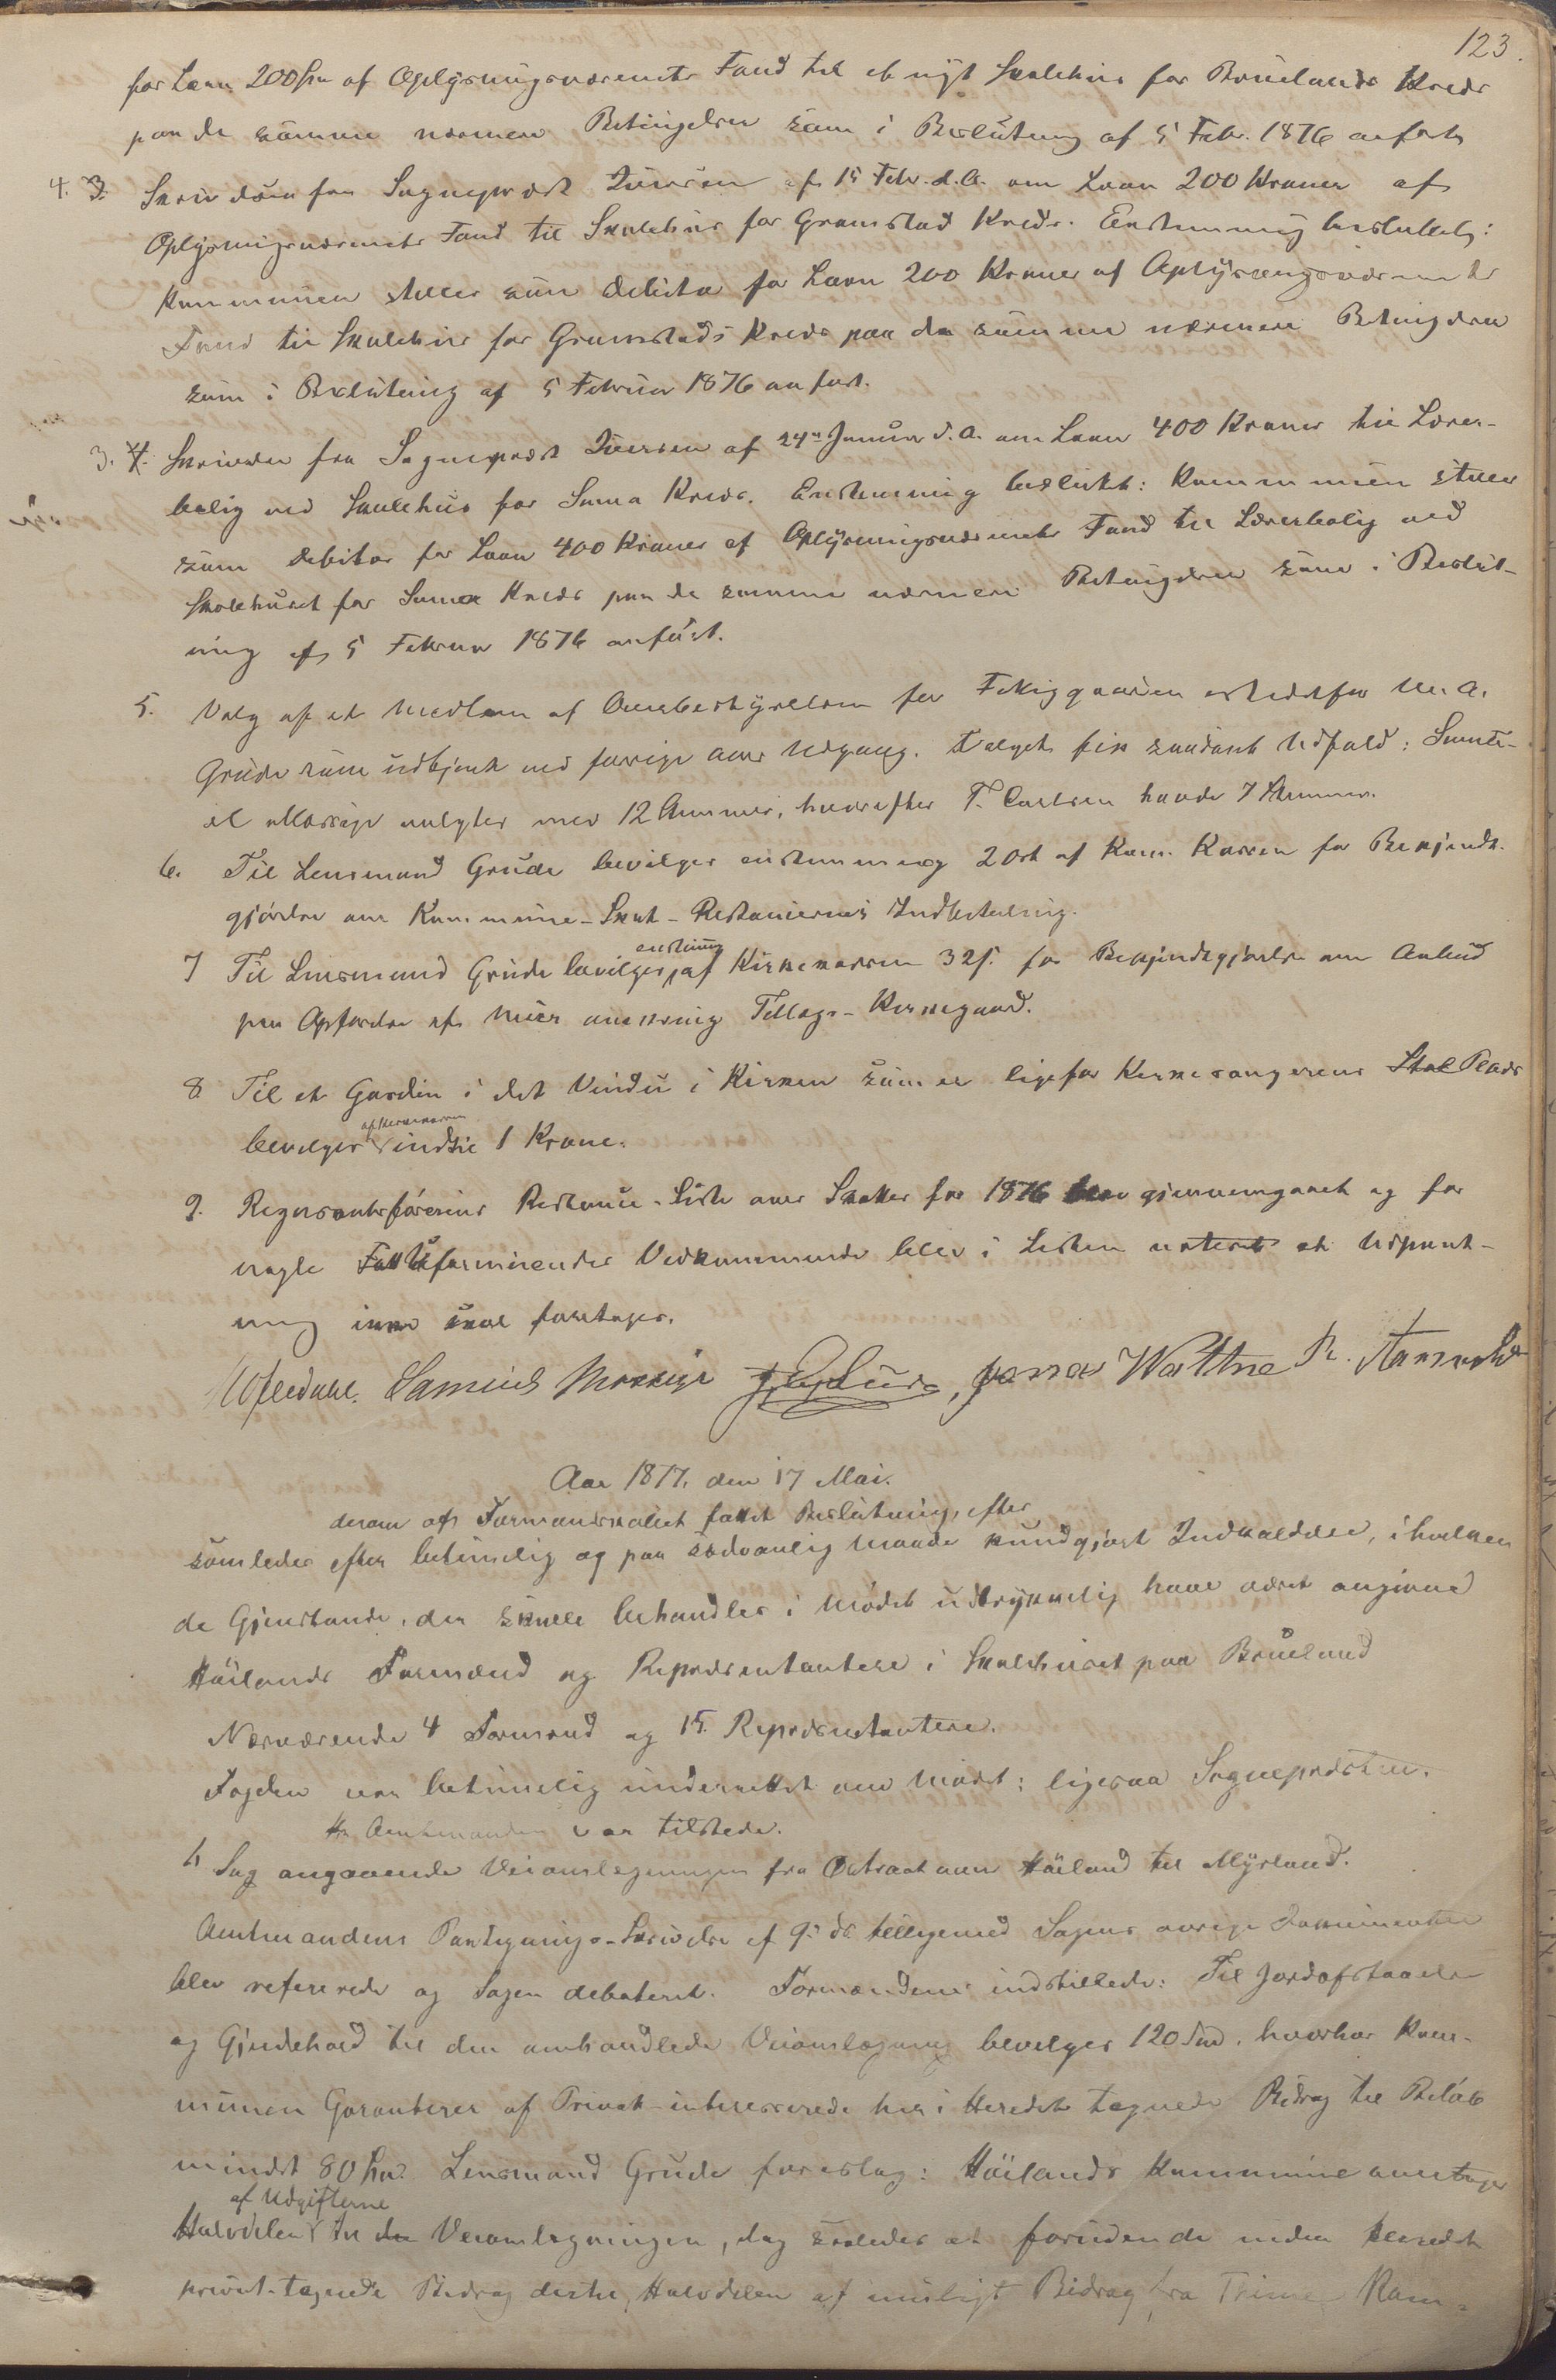 123.
for Laan 200 Kr af Oplysningsvæsenets Fond til et nyt Skolehus for Bruelands Kreds
paa de samme nærmere Betingelser som i Beslutning af 5 Febr. 1876 anført
4. 3. Skrivelse fra Sogneprest Iversen af 15 Febr. d.A. om Laan 200 Kroner af
Oplysningsvæsenets Fond til Skolehus for Gramstad Kreds. Enstemmig besluttet:
Kommunen steller som Debitor for Laan 200 Kroner af Oplysningsvæsenets
Fond til Skolehus for Gramstads Kreds paa de samme nærmere Betingelser
som i Beslutning af 5 Februar 1876 anført.
3. 4. Skrivelse fra Sogneprest Iversen af 24de Januar d.A. om Laan 400 Kroner til Lærer-
bolig ved Skolehus for Soma Kreds. Enstemmig besluttet: Kommunen steller
som Debitor for Laan 400 Kroner af Oplysningsvæsenets Fond til Lærerbolig ved
Skolehuset for Soma Kreds paa de samme nærmere Betingelser som i Beslut-
ning af 5 Februar 1876 anført.
5. Valg af et Medlem af Overbestyrelsen for Fattiggaarden istedetfor M. A.
Grude som udtjent ved forrige Aars Udgang. Valget fik saadant Udfald: Samu-
el Mossige valgtes med 12 Stemmer, hvorefter T. Carlsen havde 7 Stemmer.
6. Til Lensmand Grude bevilges enstemmig 2 Ort af Kom. Kassen for Bekjendt-
gjørelse om Kommune-Skat-Restancernes Indbetaling.
7 Til Lensmand Grude bevilges enstemig af Kirkekassen 32 s. for Bekjendtgjørelse om Anbud
paa Opførelse af Muur omkring Tillægs-Kirkegaard.
8 Til et Gardin i det Vindu i Kirken som er ligefor Kirkesangerens Stol Plads
bevilges af Kirkekassen indtil 1 Krone.
9. Regnskabsførerens Restance-Liste over Skatter for 1876 blev gjennemgaaet og for
nogle Uformuendes Vedkommende blev i Listen noteret at Udpant-
ning ikke skal foretages.
Samuel Mossige Jonas Wattne
Aar 1877. den 17 Mai.
derom af Formandskabet fattet Beslutning, efter
samledes efter betimelig og paa sædvanlig Maade kundgjort Indkaldelse, i hvilken
de Gjenstande, der skulle behandles i Mødet udtrykkelig have været angivne
Høilands Formænd og Repræsentantere i Skolehuset paa Brueland
Nærværende 4 Formænd og 15. Repræsentantere.
Fogden var betimelig underrettet om Mødet; ligesaa Sognepræsten.
Hr Amtmanden var tilstede.
1 Sag angaaende Veiomlægningen fra Østraat over Høiland til Myrland.
Amtmandens Paategnings-Skrivelse af 9de ds. tilligemed Sagens øvrige Dokumenter
blev refererede og Sagen debateret. Formændene indstillede: Til Jordafstaaelse
og Gjerdehold til den omhandlede Veiomlægning bevilges 120 Spd. hvorhos Kom-
munen Garanterer af Privat-interesserede her i Heredet tegnede Bidrag til Beløb
mindst 80 Spd. Lensmand Grude foreslog: Høilands Kommune overtager
Halvdelen af Udgifterne til Veiomlægningen, dog saaledes at foruden de inden Heredet
privat-tegnede Bidrag dertil, Halvdelen af muligt Bidrag fra Thime Kom-